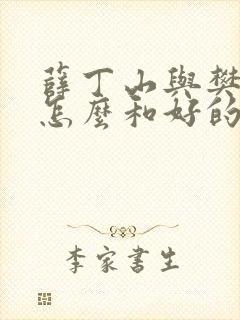 薛丁山與樊
怎麼和好的
李家書生